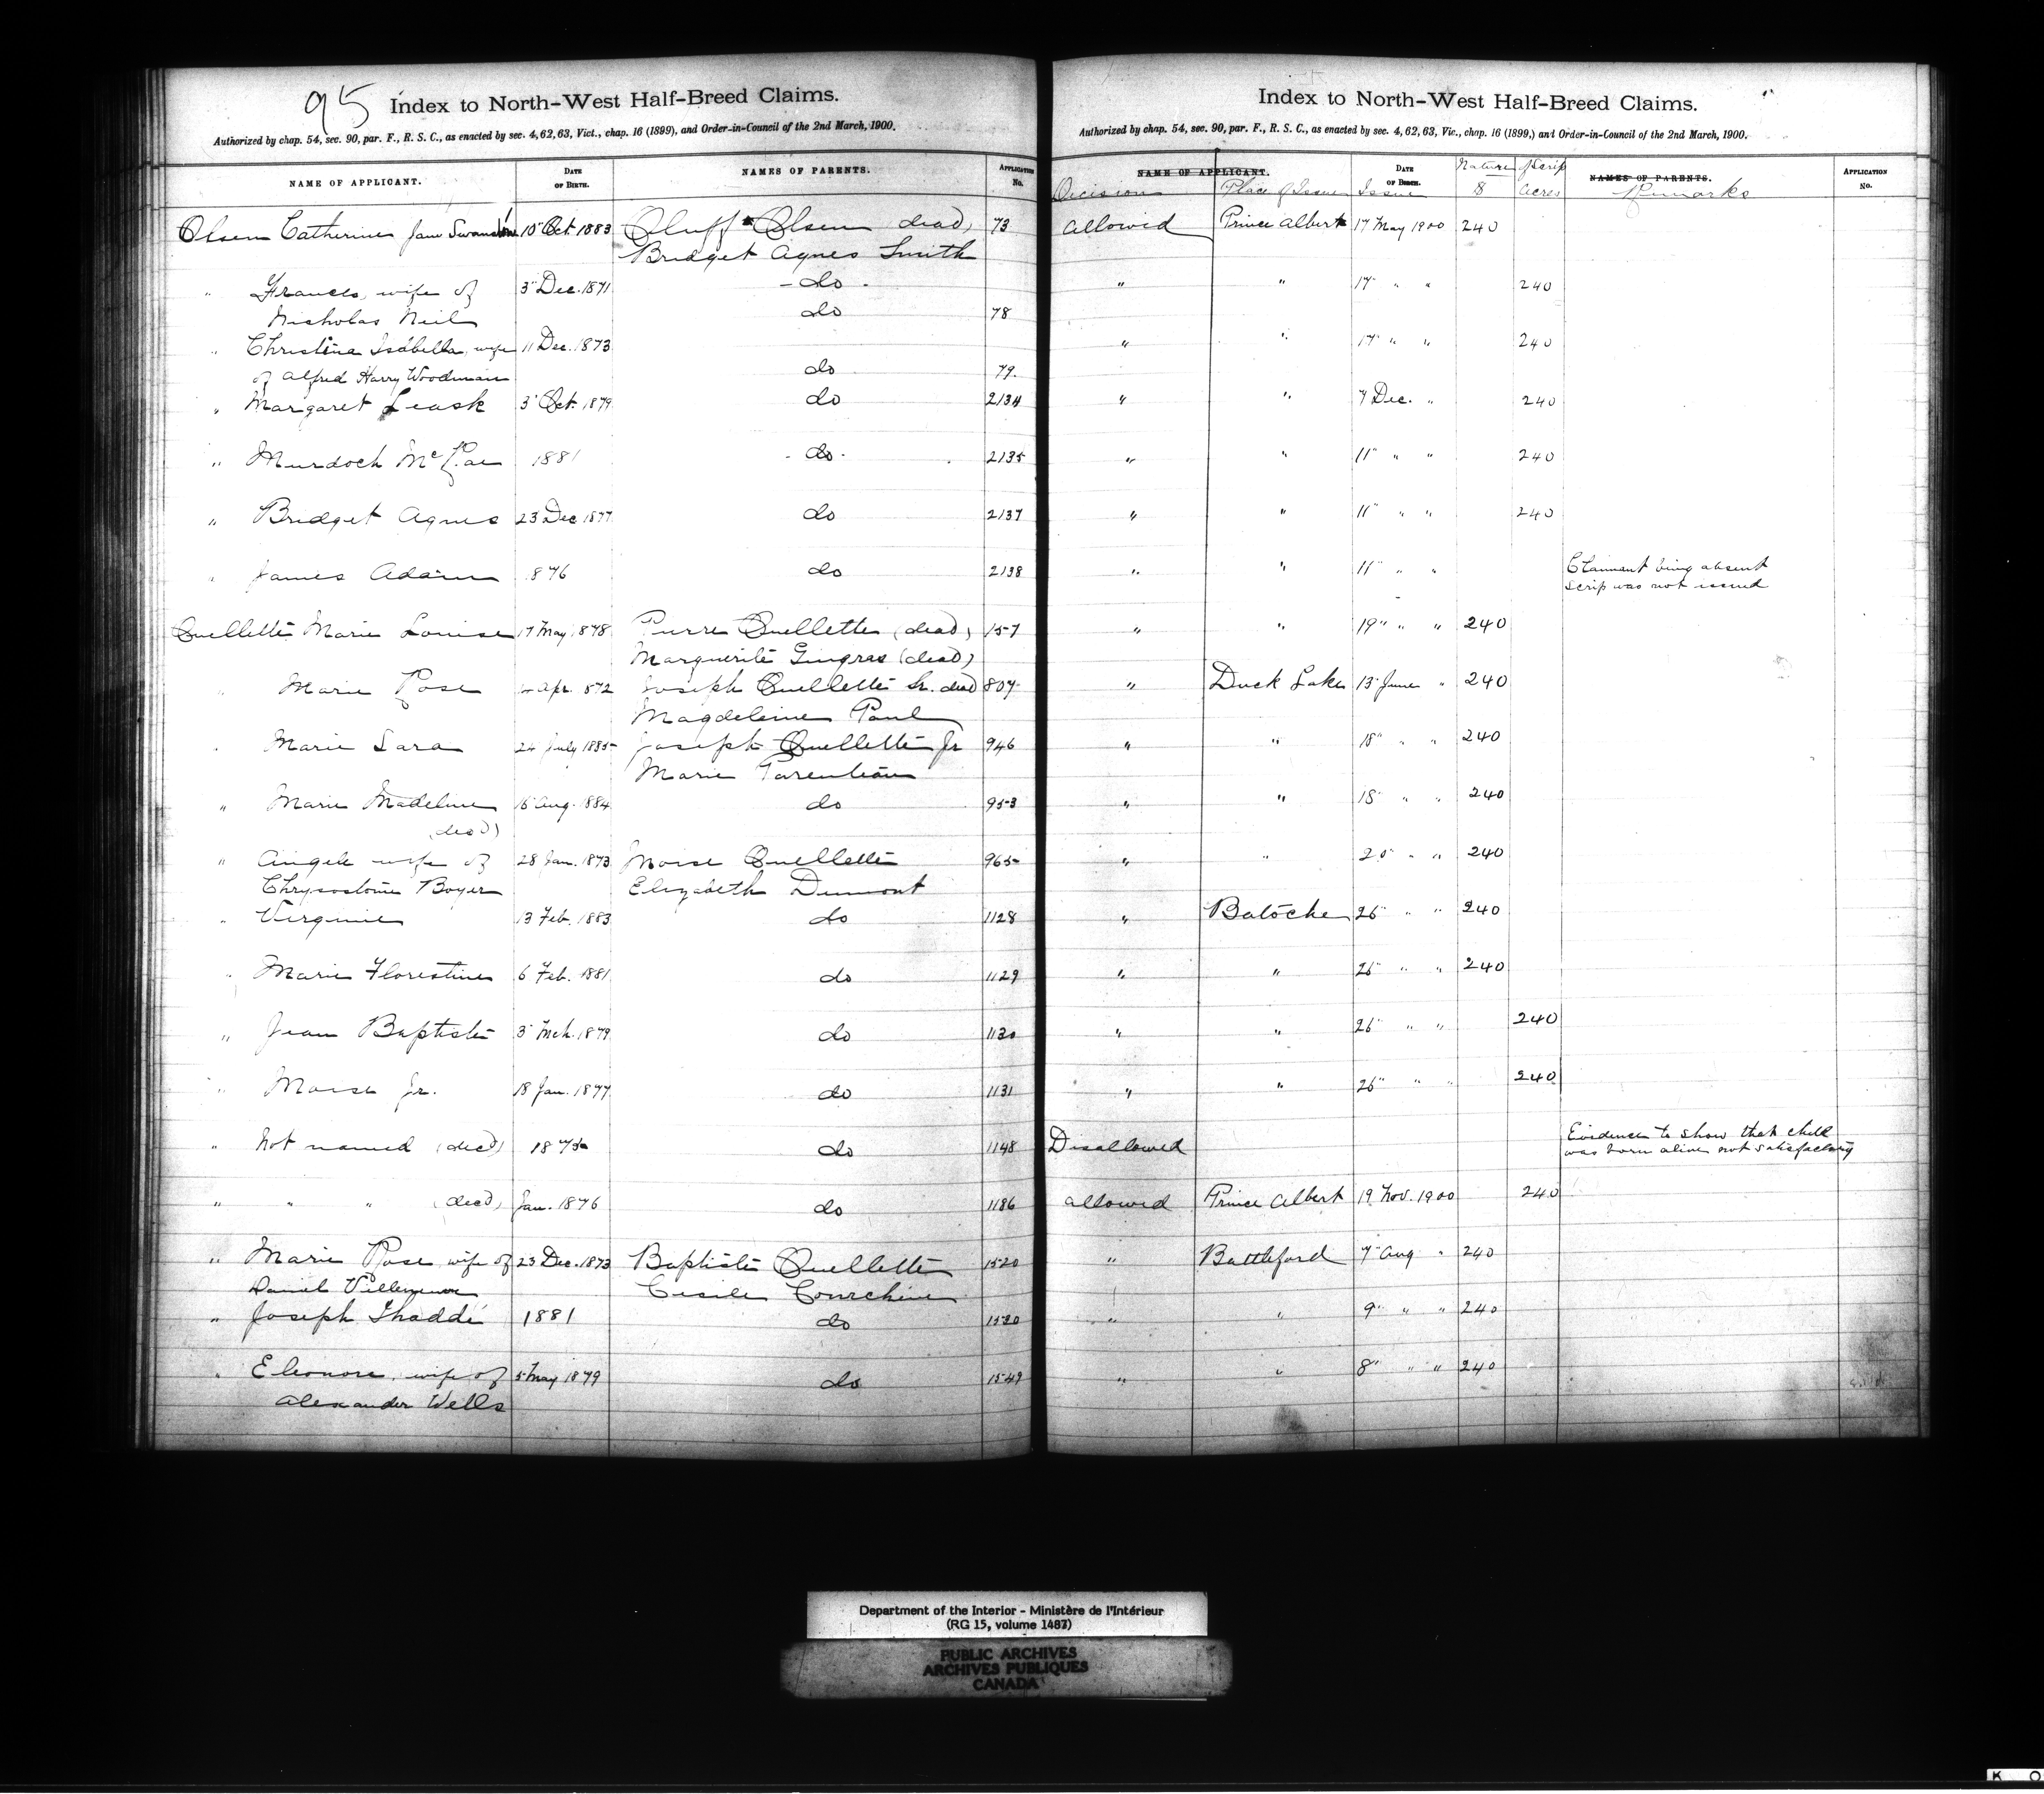 95 Index to North-West Half-Breed Claims.
Authorized by chap. 54, sec. 90, par. F., R. S. C., as enacted by sec. 4, 62, 63, Vict., chap. 16 (1899), and Order-in-Council of the 2nd March, 1900.
NAME OF APPLICANT. DATE OF BIRTH. NAMES OF PARENTS. APPLICATION No.
Olsen Catherine Jane Swanston 10" Oct. 1883 Oluff Olsen dead) 73
Bridget Agnes Smith
" Frances, wife of 3" Dec. 1871 - do -
Nicholas Neil do 78
" Christina Isabella, wife 11 Dec. 1873
of Alfred Harry Woodman do 79.
" Margaret Leask 3" Oct. 1879 do 2134
" Murdoch McRae 1881 - do - 2135
" Bridget Agnes 23 Dec 1877 do 2137
" James Adam 1876 do 2138
Ouellette Marie Louise 17 May 1878 Pierre Ouellette (dead) 157
Marguerite Gingras (dead)
" Marie Rose Apr. 1872 Joseph Ouellette Sr. dead 807
Magdeleine Paul
" Marie Sara 24 July 1885 Joseph Ouellette Jr 946
Marie Parenteau
" Marie Madeline 15 Aug. 1884 do 953
(dead)
" Angele wife of 28 Jan. 1873 Moise Ouellette 965
Chrysostome Boyer Elizabeth Dumont
" Virginie 13 Feb. 1883 do 1128
" Marie Florestine 6 Feb. 1881 do 1129
" Jean Baptiste 3" Mch. 1879 do 1130
" Moise Jr. 18 Jan. 1877 do 1131
" Not named (decd) 1875 do 1148
" " " (decd) Jan. 1876 do 1186
" Marie Rose, wife of 23 Dec. 1873 Baptiste Ouellette 1520
Daniel Villeneuve Cecile Courchene
" Joseph Thaddé 1881 do 1530
" Eleonore, wife of 5 May 1879 do 1549
Alexander Wells
Index to North-West Half-Breed Claims.
Authorized by chap. 54, sec. 90, par. F., R. S. C., as enacted by sec. 4, 62, 63, Vic., chap. 16 (1899,) and Order-in-Council of the 2nd March, 1900.
NAME OF APPLICANT. DATE OF BIRTH. Nature of Scrip NAMES OF PARENTS. APPLICATION No.
Decision Place of Issue Issue $ Acres Remarks
Allowed Prince Albert 17 May 1900 240
" " 17" " " 240
" " 17" " " 240
" " 7 Dec. " 240
" " 11" " " 240
" " 11" " " 240
" " 11" " " Claimant being absent
scrip was not issued
" " 19" " " 240
" Duck Lake 13" June " 240
" " 18" " " 240
" " 18" " " 240
" " 20" " " 240
" Batoche 26" " " 240
" " 26" " " 240
" " 26" " " 240
" " 26" " " 240
Disallowed Evidence to show that child
was born alive not satisfactory
allowed Prince Albert 19 Nov. 1900 240
" Battleford 7" Aug " 240
" " 9" " " 240
" " 8" " " 240
Department of the Interior - Ministère de l'Intérieur
(RG 15, volume 1487)
PUBLIC ARCHIVES
ARCHIVES PUBLIQUES
CANADA
K O